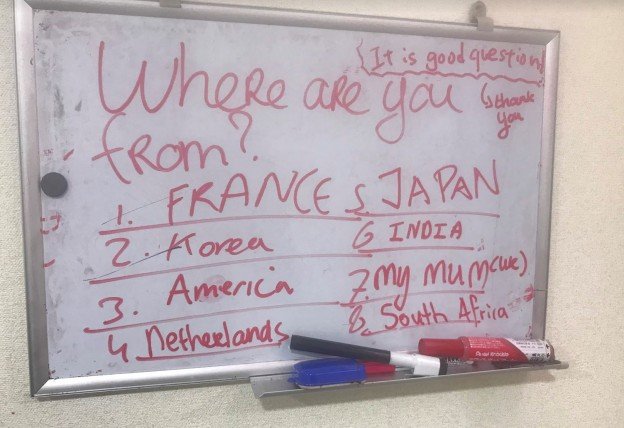 It is good question
Where are you
↳ thank
you
from?
1. FRANCE
2. Korea
3. America
4 Netherlands
5. JAPAN
6 INDIA
7. My MUM (luc)
8. South Afria